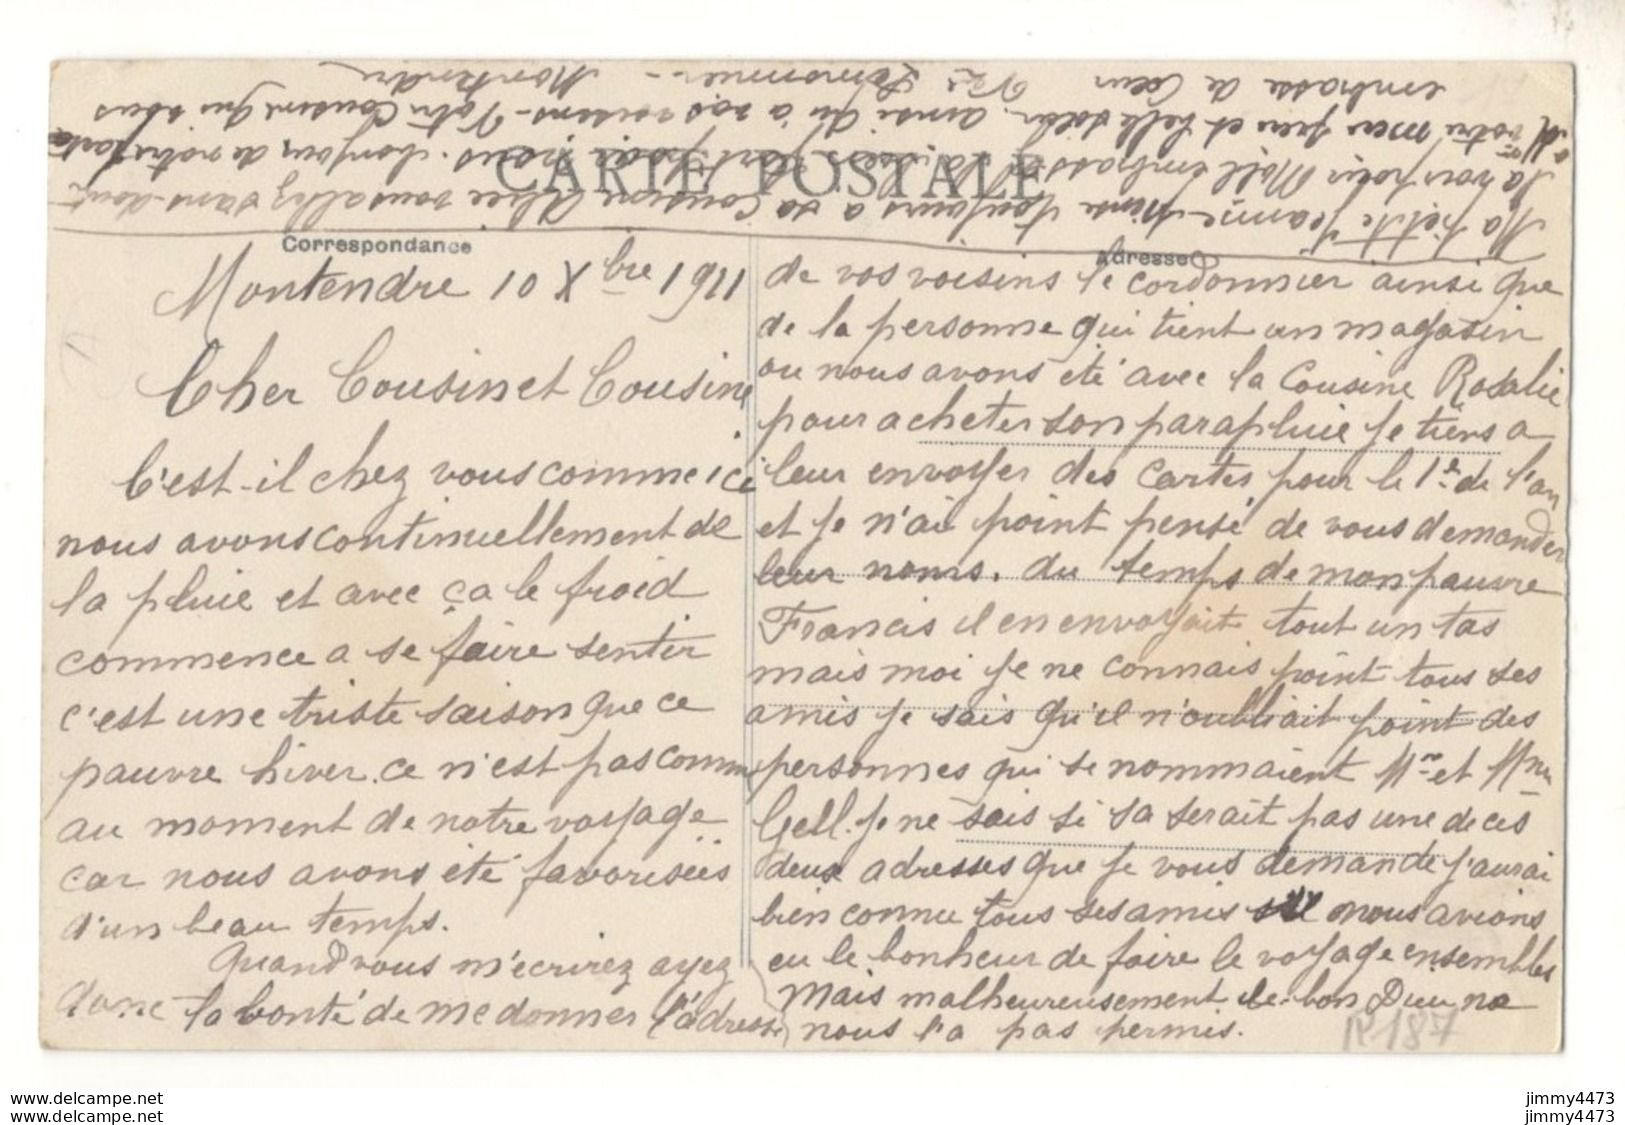 CARTE POSTALE
Correspondance
Montendre 10 Xbre 1911
Cher Cousin et Cousine
C'est-il chez vous comme ici
nous avons continuellement de
la pluie et avec ça le froid
commence a se faire sentir
c'est une triste saison que ce
pauvre hiver. ce n'est pas comme
au moment de notre voyage
car nous avons été favorisées
d'un beau temps.
Quand vous m'ecrirez ayez
donc la bonté de me donner l'adresse
Adresse
de vos voisins le cordonnier ainsi que
de la personne qui tient un magasin
ou nous avons eté avec la Cousine Rosalie
pour acheter son parapluie je tiens a
leur envoyer des cartes pour le 1er de l'an
et je n'ai point pensé de vous demander
leur noms. du temps de mon pauvre
Francis il en envoyait tout un tas
mais moi je ne connais point tous ses
amis je sais qu'il n'oubliait point des
personnes qui se nommaient Mr et Mme
Gell. je ne sais si sa serait pas une de ces
deux adresses que je vous demande j'aurai
bien connu tous ses amis si nous avions
eu le bonheur de faire le voyage ensembles
Mais malheureusement le bon Dieu ne
nous l'a pas permis.
Ma petite Jeanne pense toujours a sa Cousine Alice vous allez sans dout
la voir pour Noël embrassez la bien fort pour nous. bonjour de notre part a
votre mere frere et belle soeur. ainsi qu'a vos voisins - Votre Cousine qui vous
embrasse de Coeur Vve Lamonnier - Montendre
R187
jimmy4473
jimmy4473
www.delcampe.net
www.delcampe.net